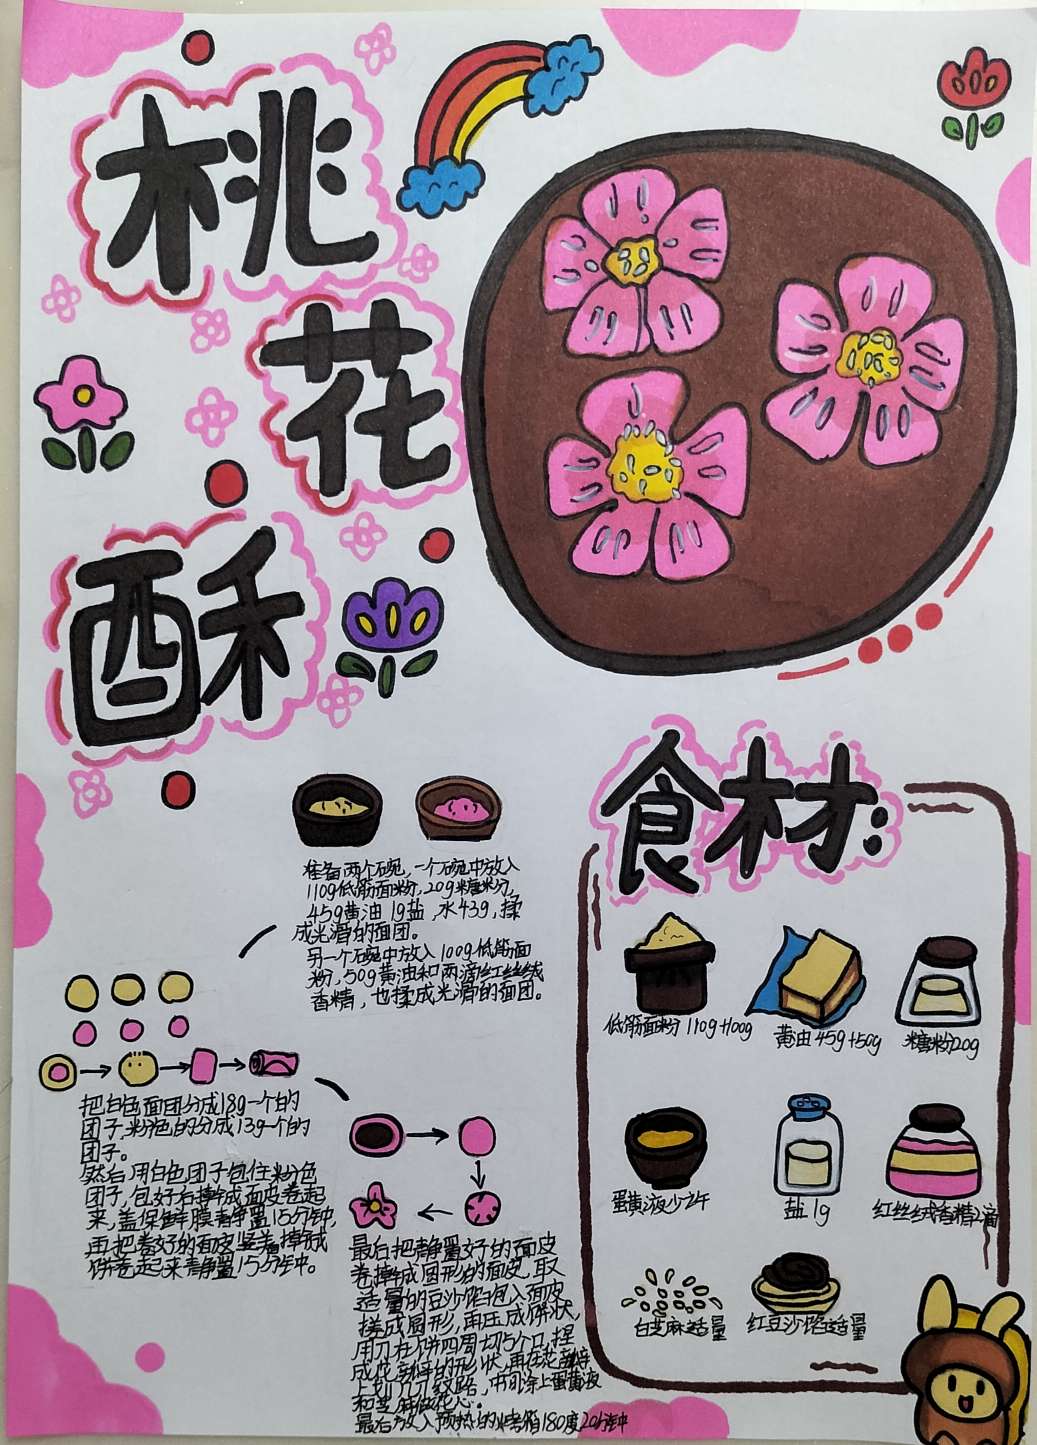 桃
花
酥
准备两个碗，一个碗中放入
110g低筋面粉，20g糖粉，
45g黄油 1g盐，水43g，揉
成光滑的面团。
另一个碗中放入100g低筋面
粉，50g黄油和两滴红丝绒
香精，也揉成光滑的面团。
把白色面团分成18g一个的
团子，粉色的分成13g一个的
团子。
然后用白色团子包住粉色
团子，包好后擀成面皮卷起
来，盖保鲜膜静置15分钟，
再把卷好的面皮竖着擀成
饼卷起来静置15分钟。
最后把静置好的面皮
卷擀成圆形的面皮，取
适量的豆沙馅包入面皮
搓成圆形，再压成饼状，
用刀在饼四周切5个口，捏
成花瓣的形状，再在花瓣
上划几刀纹路，中间涂上蛋黄液
和芝麻做花心。
最后放入预热的烤箱180度20分钟
食材：
低筋面粉 110g+100g
黄油 45g+50g
糖粉20g
蛋黄液少许
盐1g
红丝绒香精2滴
白芝麻适量
红豆沙馅适量